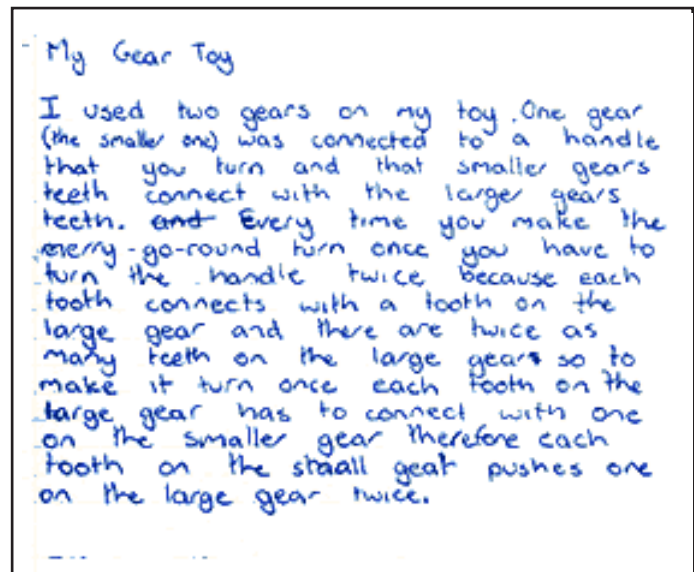 My Gear Toy
I used two gears on my toy. One gear
(the smaller one) was connected to a handle
that you turn and that smaller gears
teeth connect with the larger gears
teeth. and Every time you make the
merry-go-round turn once you have to
turn the handle twice because each
tooth connects with a tooth on the
large gear and there are twice as
many teeth on the large gear so to
make it turn once each tooth on the
large gear has to connect with one
on the smaller gear therefore each
tooth on the small gear pushes one
on the large gear twice.